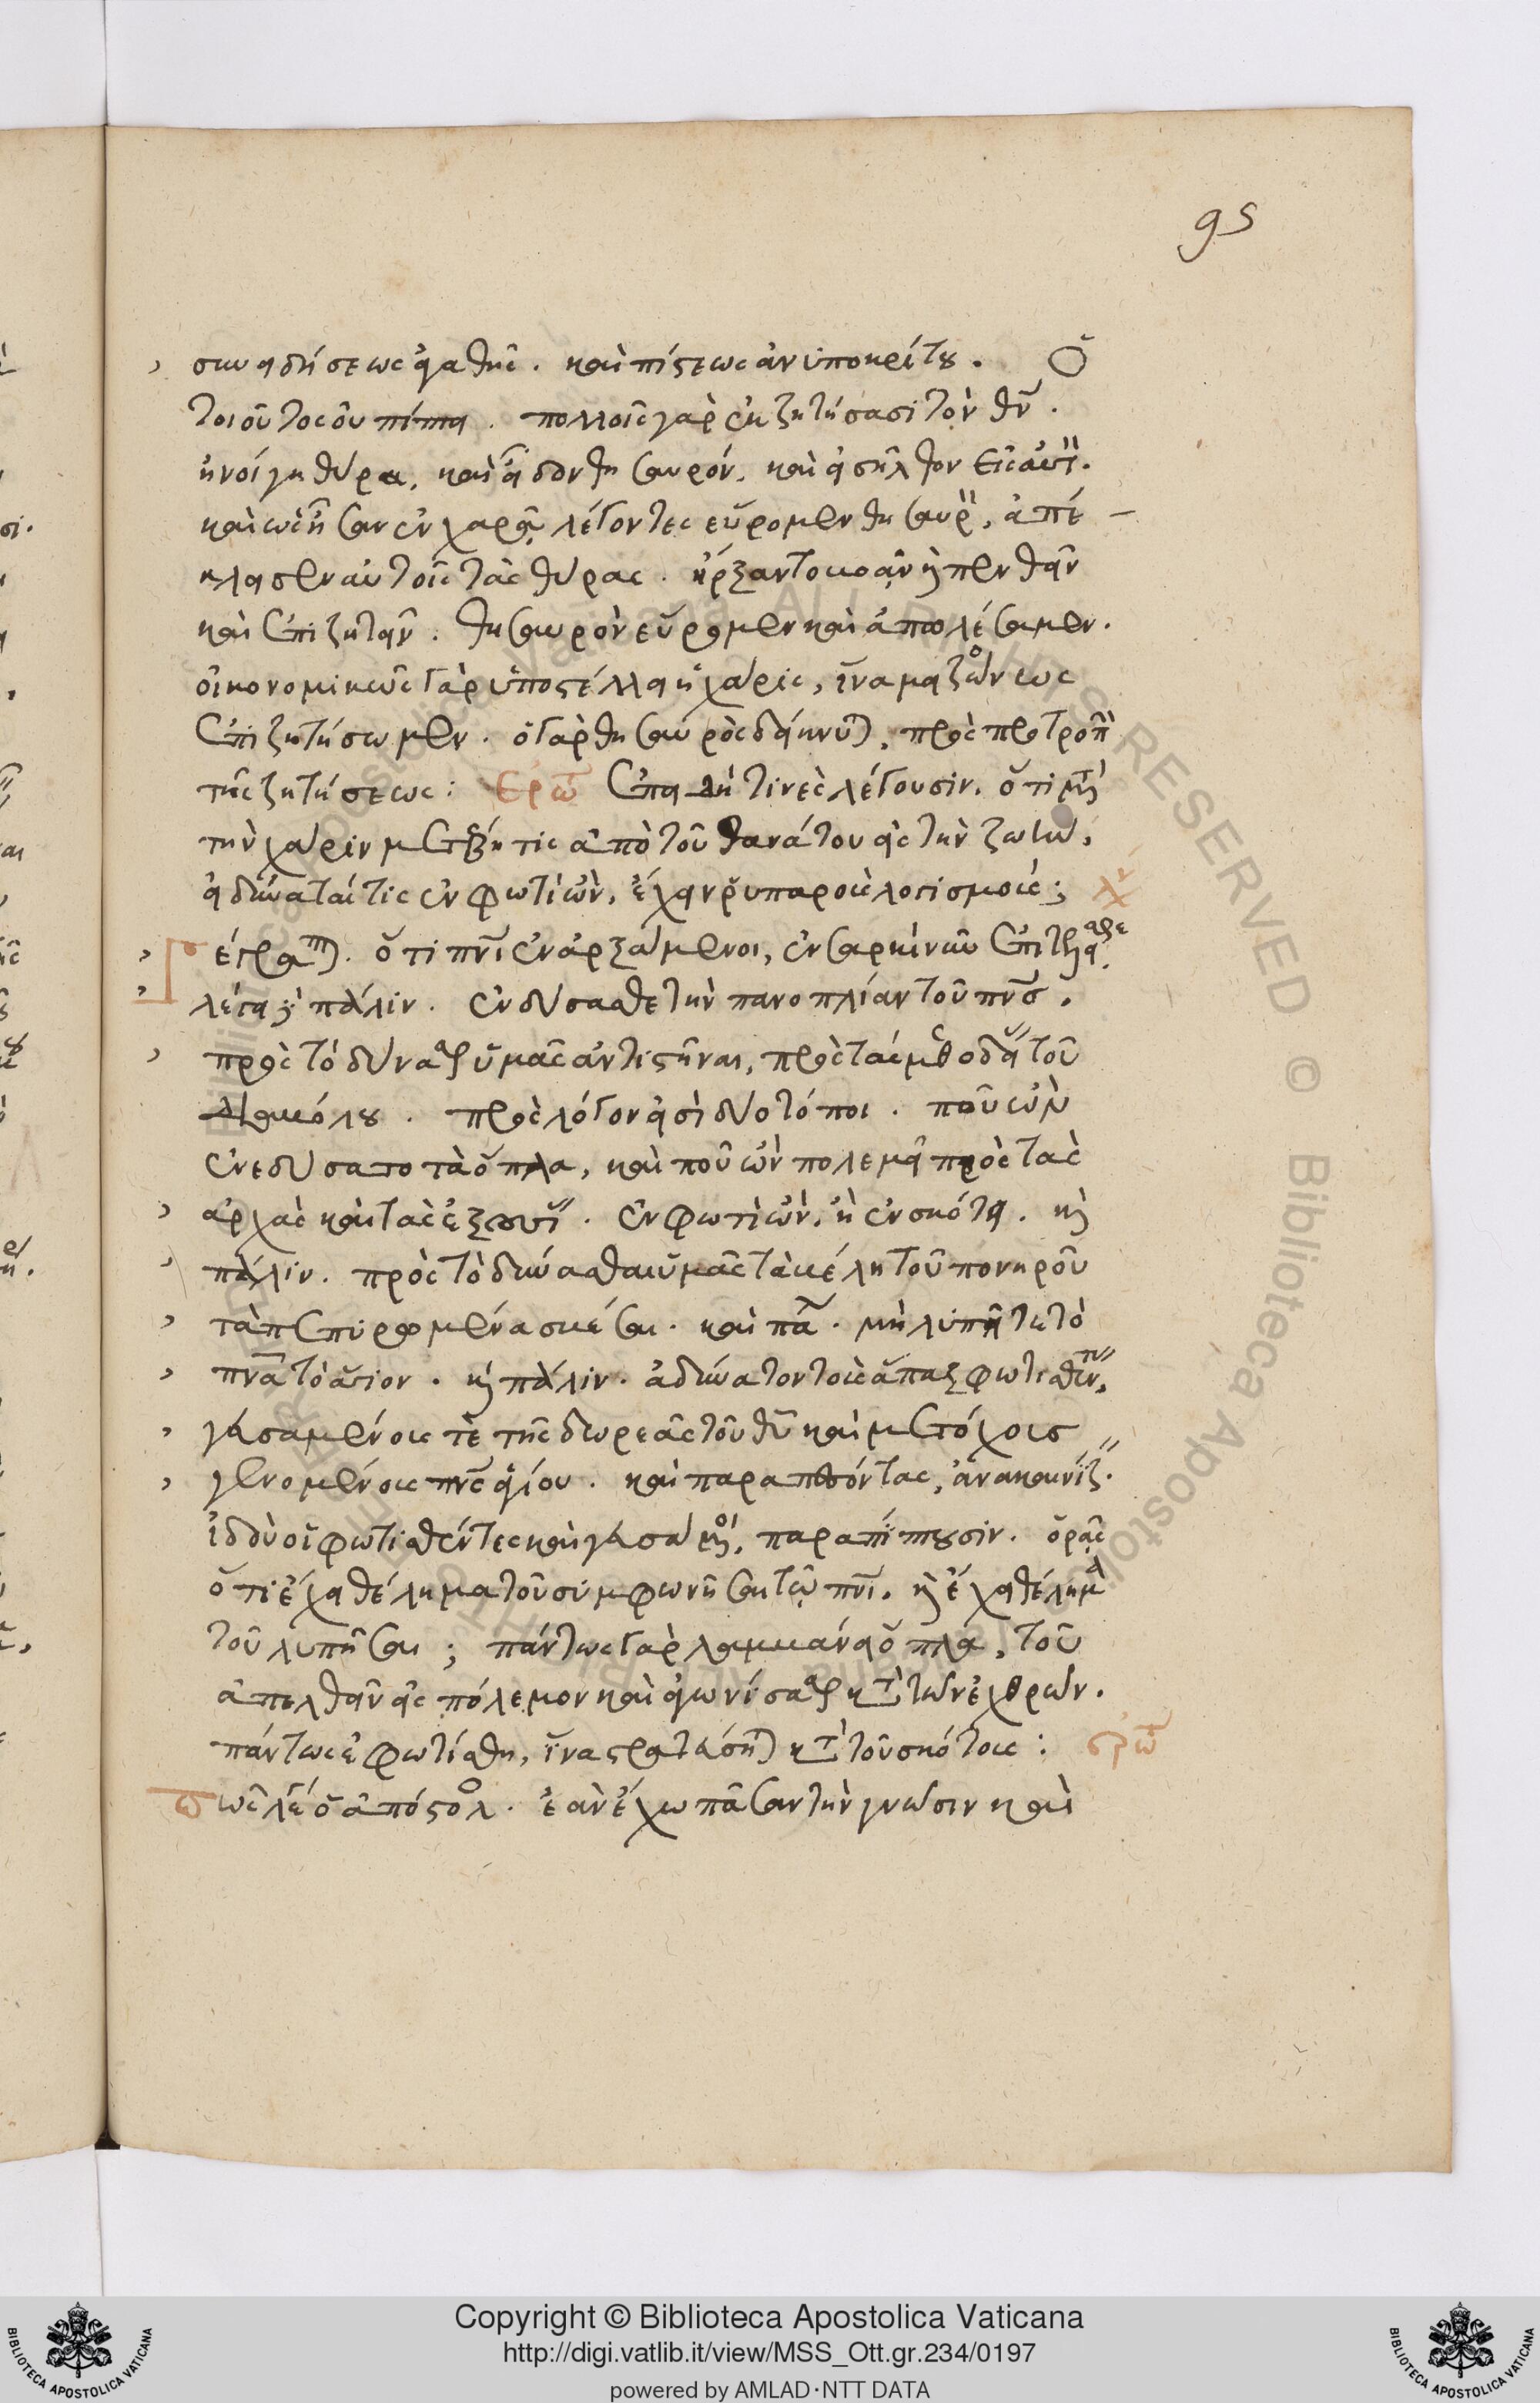 95
συνειδήσεως ἀγαθῆς. καὶ πίστεως ἀνυποκρίτου. Ὁ
τοιοῦτος οὐ πίπτει. πολλοῖς γὰρ ἐκζητήσασι τὸν θν.
ἠνοίγη θύρα, καὶ εἶδον θησαυρόν, καὶ εἰσῆλθον εἰς αὐτ.
καὶ ὡς ἦσαν ἐν χαρᾷ λέγοντες εὕρομεν θησαυρ, ἀπέ
κλεισεν αὐτοῖς τὰς θύρας. ἤρξαντο κράζειν κ πενθεῖν
καὶ ἐπιζητεῖν. θησαυρὸν εὕρομεν καὶ ἀπωλέσαμεν.
οἰκονομικῶς γὰρ ὑποστέλλει ἡ χάρις, ἵνα μειζόνως
ἐπιζητήσωμεν. ὁ γὰρ θησαυρὸς δείκνυται, πρὸς προτροπὴ
τῆς ζητήσεως: Ἐρώ Ἐπειδή τινες λέγουσιν, ὅτι μετὰ
τὴν χάριν μεταβῇ τις ἀπὸ τοῦ θανάτου εἰς τὴν ζωήν,
εἰ δύναταί τις ἐν φωτὶ ὢν, ἔχειν ῥυπαροὺς λογισμούς;
γέγραπται. ὅτι πνι ἐναρξάμενοι, ἐν σαρκὶ νῦν ἐπιτε
λεῖσθε; πάλιν. ἐνδύσασθε τὴν πανοπλίαν τοῦ πνς.
πρὸς τὸ δύνασθαι ὑμᾶς ἀντιστῆναι, πρὸς τὰς μεθοδεί τοῦ
διαβόλου. πρὸς λόγον εἰσὶ δύο τόποι. ποῦ ὢν
ἐνεδύσατο τὰ ὅπλα, καὶ ποῦ ὢν πολεμεῖ πρὸς τὰς
ἀρχὰς καὶ τὰς ἐξουσί. ἐν φωτὶ ὢν, ἢ ἐν σκότει. κ
πάλιν. πρὸς τὸ δύνασθαι ὑμᾶς τὰ βέλη τοῦ πονηροῦ
τὰ πεπυρωμένα σβέσαι. καὶ πά. μὴ λυπεῖτε τὸ
πνα τὸ ἅγιον. κ πάλιν. ἀδύνατον τοὺς ἅπαξ φωτισθέν,
γευσαμένους τε τῆς δωρεᾶς τοῦ θυ καὶ μετόχους
γενομένους πνς ἁγίου. καὶ παραπεσόντας, ἀνακαινίζ.
ἰδοὺ οἱ φωτισθέντες καὶ γευσάμενοι, παραπίπτουσιν. ὁρᾷς
ὅτι ἔχει θέλημα τοῦ συμφωνῆσαι τῷ πνι. κ ἔχει θέλημα
τοῦ λυπῆσαι; πάντως γὰρ λαμβάνει ὅπλα, τοῦ
ἀπελθεῖν εἰς πόλεμον καὶ ἀγωνίσασθαι κατὰ τῶν ἐχθρῶν.
πάντως ἐφωτίσθη, ἵνα στρατεύσηται κατὰ τοῦ σκότους: ἐρώ
πῶς λέγει ὁ ἀπόστολ. ἐὰν ἔχω πᾶσαν τὴν γνῶσιν καὶ
Copyright © Biblioteca Apostolica Vaticana
http://digi.vatlib.it/view/MSS_Ott.gr.234/0197
powered by AMLAD·NTT DATA